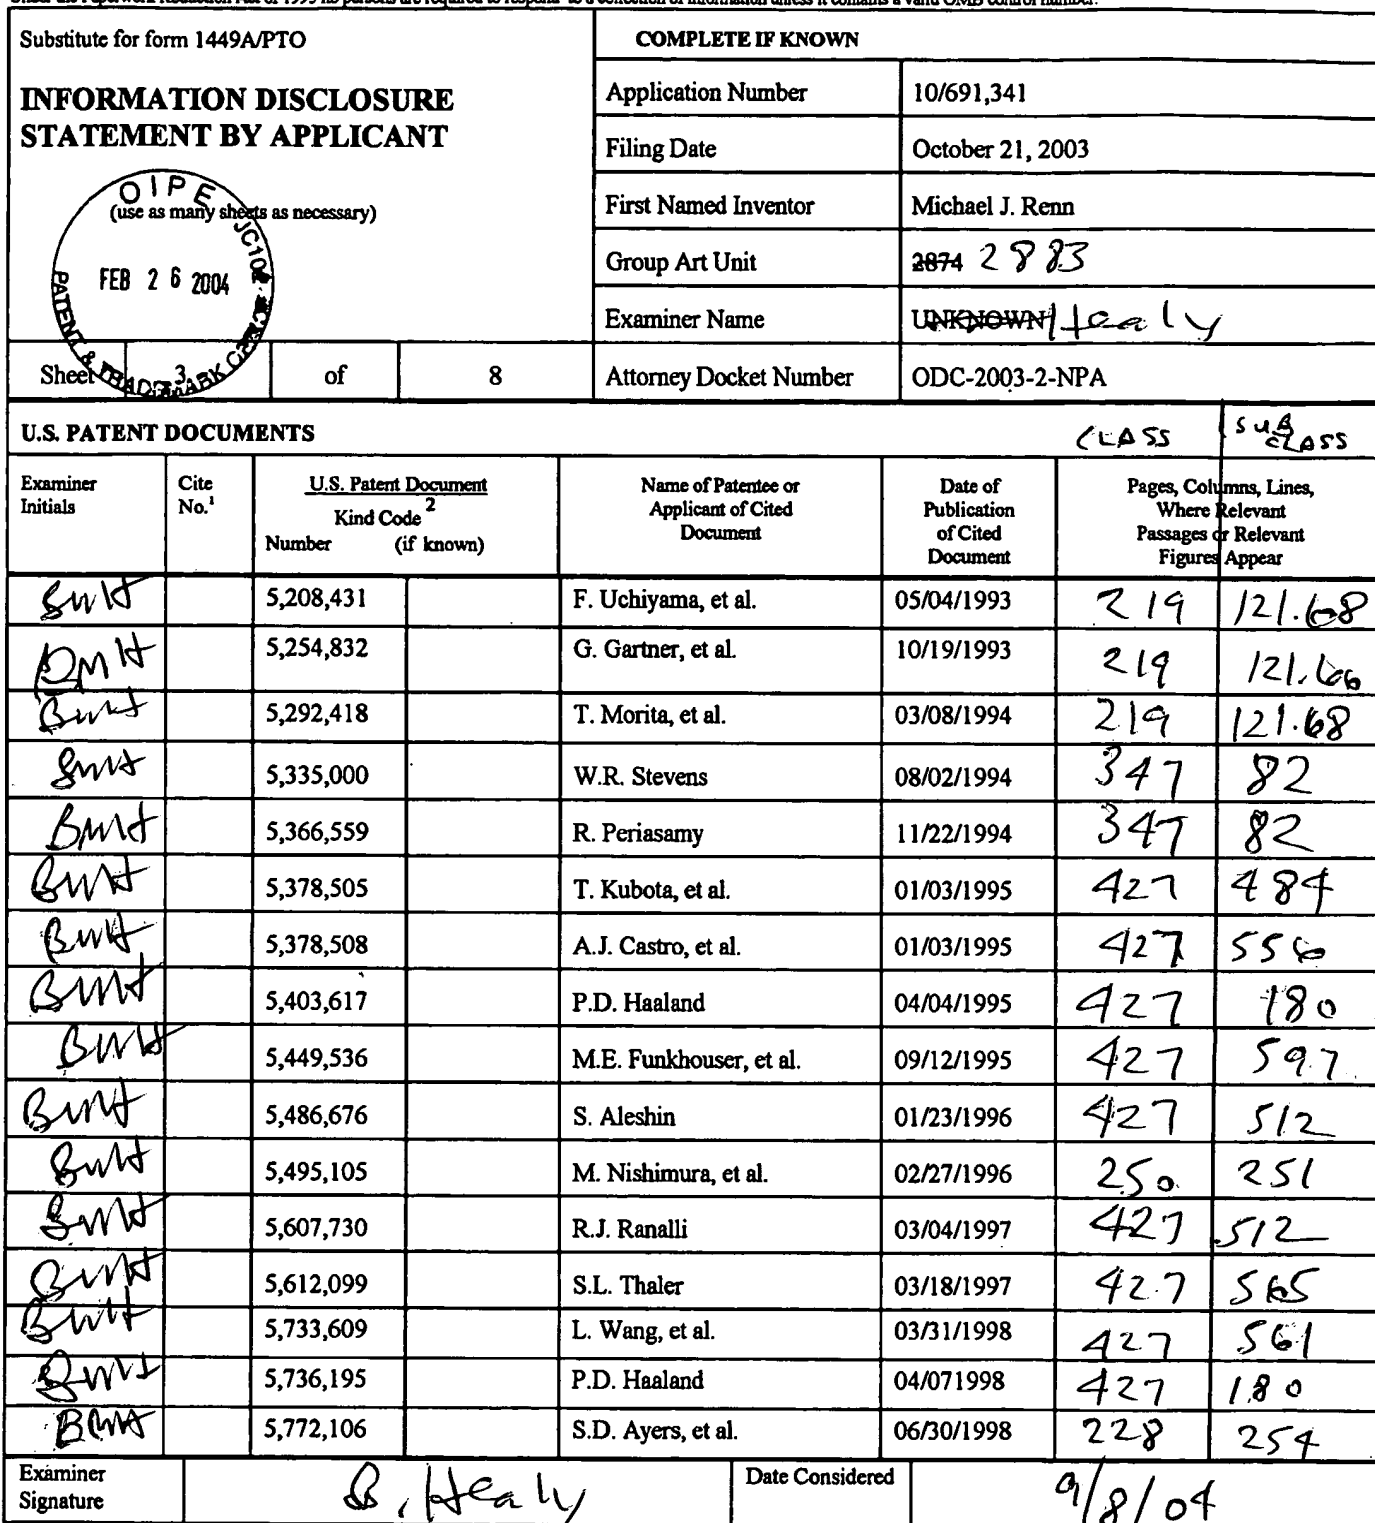 Substitute for form 1449A/PTO
INFORMATION DISCLOSURE
STATEMENT BY APPLICANT
(use as many sheets as necessary)
OIPE
FEB 26 2004
PATENT & TRADEMARK
Sheet 3 of 8
COMPLETE IF KNOWN
Application Number 10/691,341
Filing Date October 21, 2003
First Named Inventor Michael J. Renn
Group Art Unit 2874 2883
Examiner Name UNKNOWN Healy
Attorney Docket Number ODC-2003-2-NPA
U.S. PATENT DOCUMENTS CLASS SUBCLASS
Examiner Initials
Cite No.¹
U.S. Patent Document
Kind Code 2
Number (if known)
Name of Patentee or Applicant of Cited Document
Date of Publication of Cited Document
Pages, Columns, Lines, Where Relevant Passages or Relevant Figures Appear
BMH 5,208,431 F. Uchiyama, et al. 05/04/1993 219 121.68
BMH 5,254,832 G. Gartner, et al. 10/19/1993 219 121.66
BMH 5,292,418 T. Morita, et al. 03/08/1994 219 121.68
BMH 5,335,000 W.R. Stevens 08/02/1994 347 82
BMH 5,366,559 R. Periasamy 11/22/1994 347 82
BMH 5,378,505 T. Kubota, et al. 01/03/1995 427 484
BMH 5,378,508 A.J. Castro, et al. 01/03/1995 427 556
BMH 5,403,617 P.D. Haaland 04/04/1995 427 180
BMH 5,449,536 M.E. Funkhouser, et al. 09/12/1995 427 597
BMH 5,486,676 S. Aleshin 01/23/1996 427 512
BMH 5,495,105 M. Nishimura, et al. 02/27/1996 250 251
BMH 5,607,730 R.J. Ranalli 03/04/1997 427 512
BMH 5,612,099 S.L. Thaler 03/18/1997 427 565
BMH 5,733,609 L. Wang, et al. 03/31/1998 427 561
BMH 5,736,195 P.D. Haaland 04/071998 427 180
BMH 5,772,106 S.D. Ayers, et al. 06/30/1998 228 254
Examiner Signature B. Healy Date Considered 9/8/04